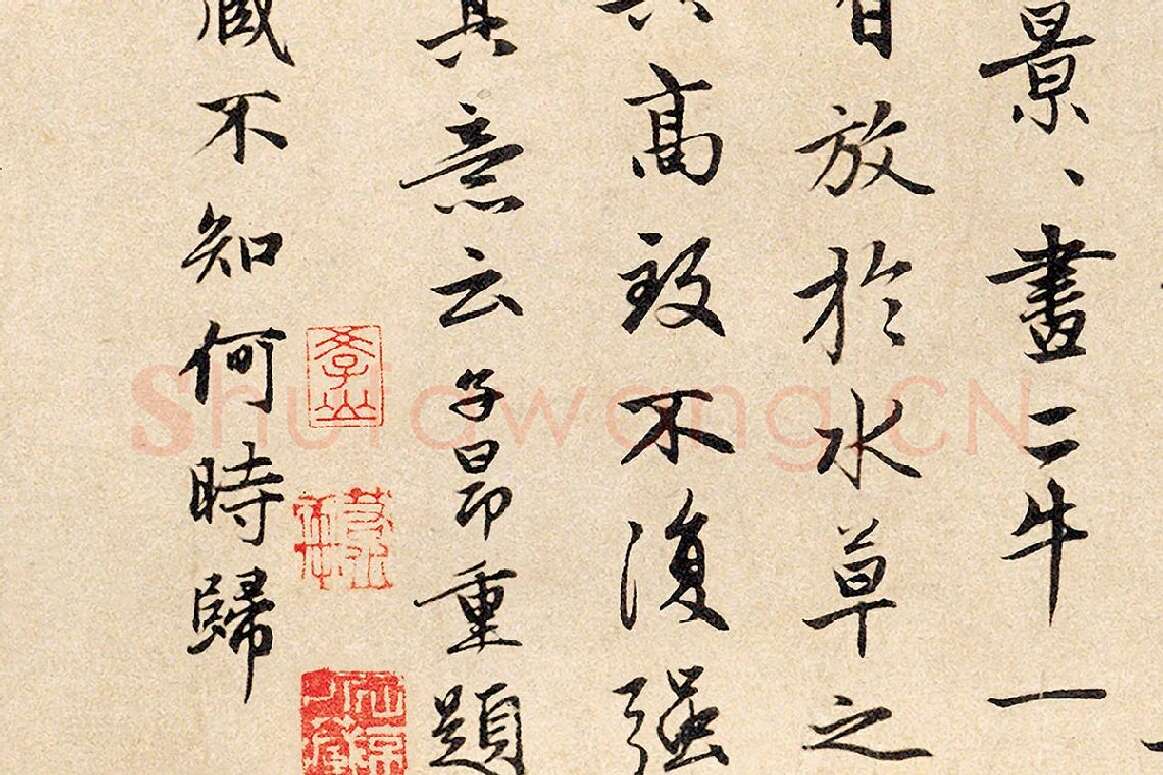 景、畫二牛一
自放於水草之
其高致不復强
其意云子昂重題
藏不知何時歸
Shufawang.CN